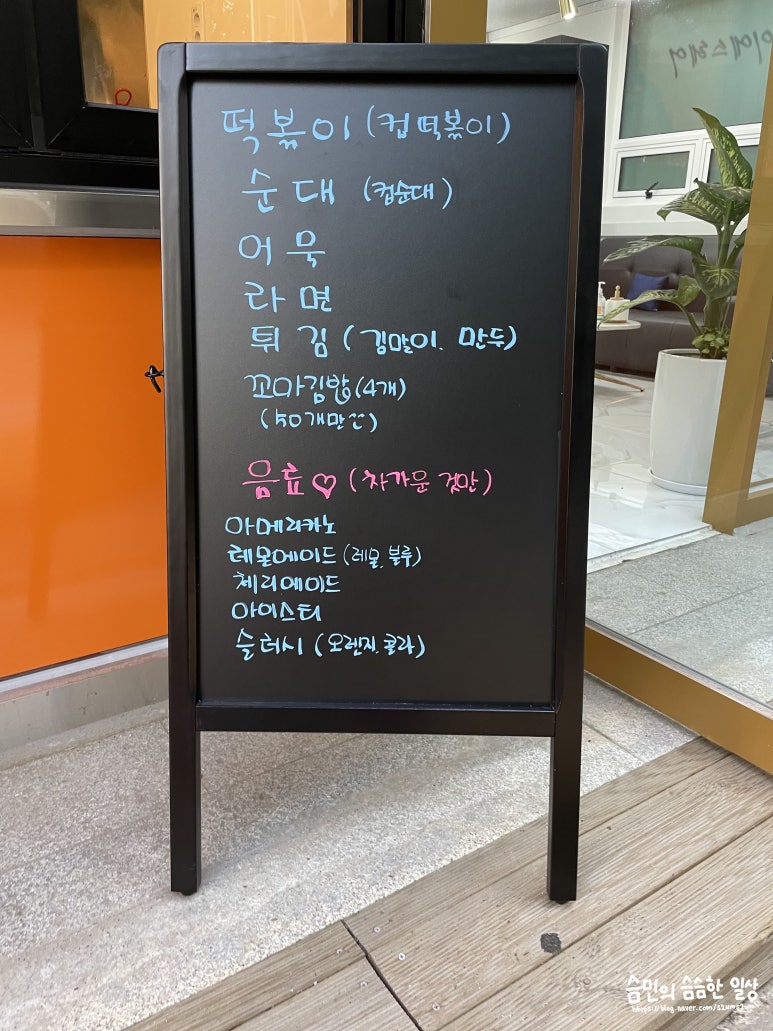 떡볶이 (컵떡볶이)
순대 (컵순대)
어묵
라면
튀김 (김말이. 만두)
꼬마김밥 (4개)
(50개만!!)
음료♡ (차가운 것만)
아메리카노
레몬에이드 (레몬. 블루)
체리에이드
아이스티
슬러시 (오렌지. 콜라)
슴민의 슴슴한 일상